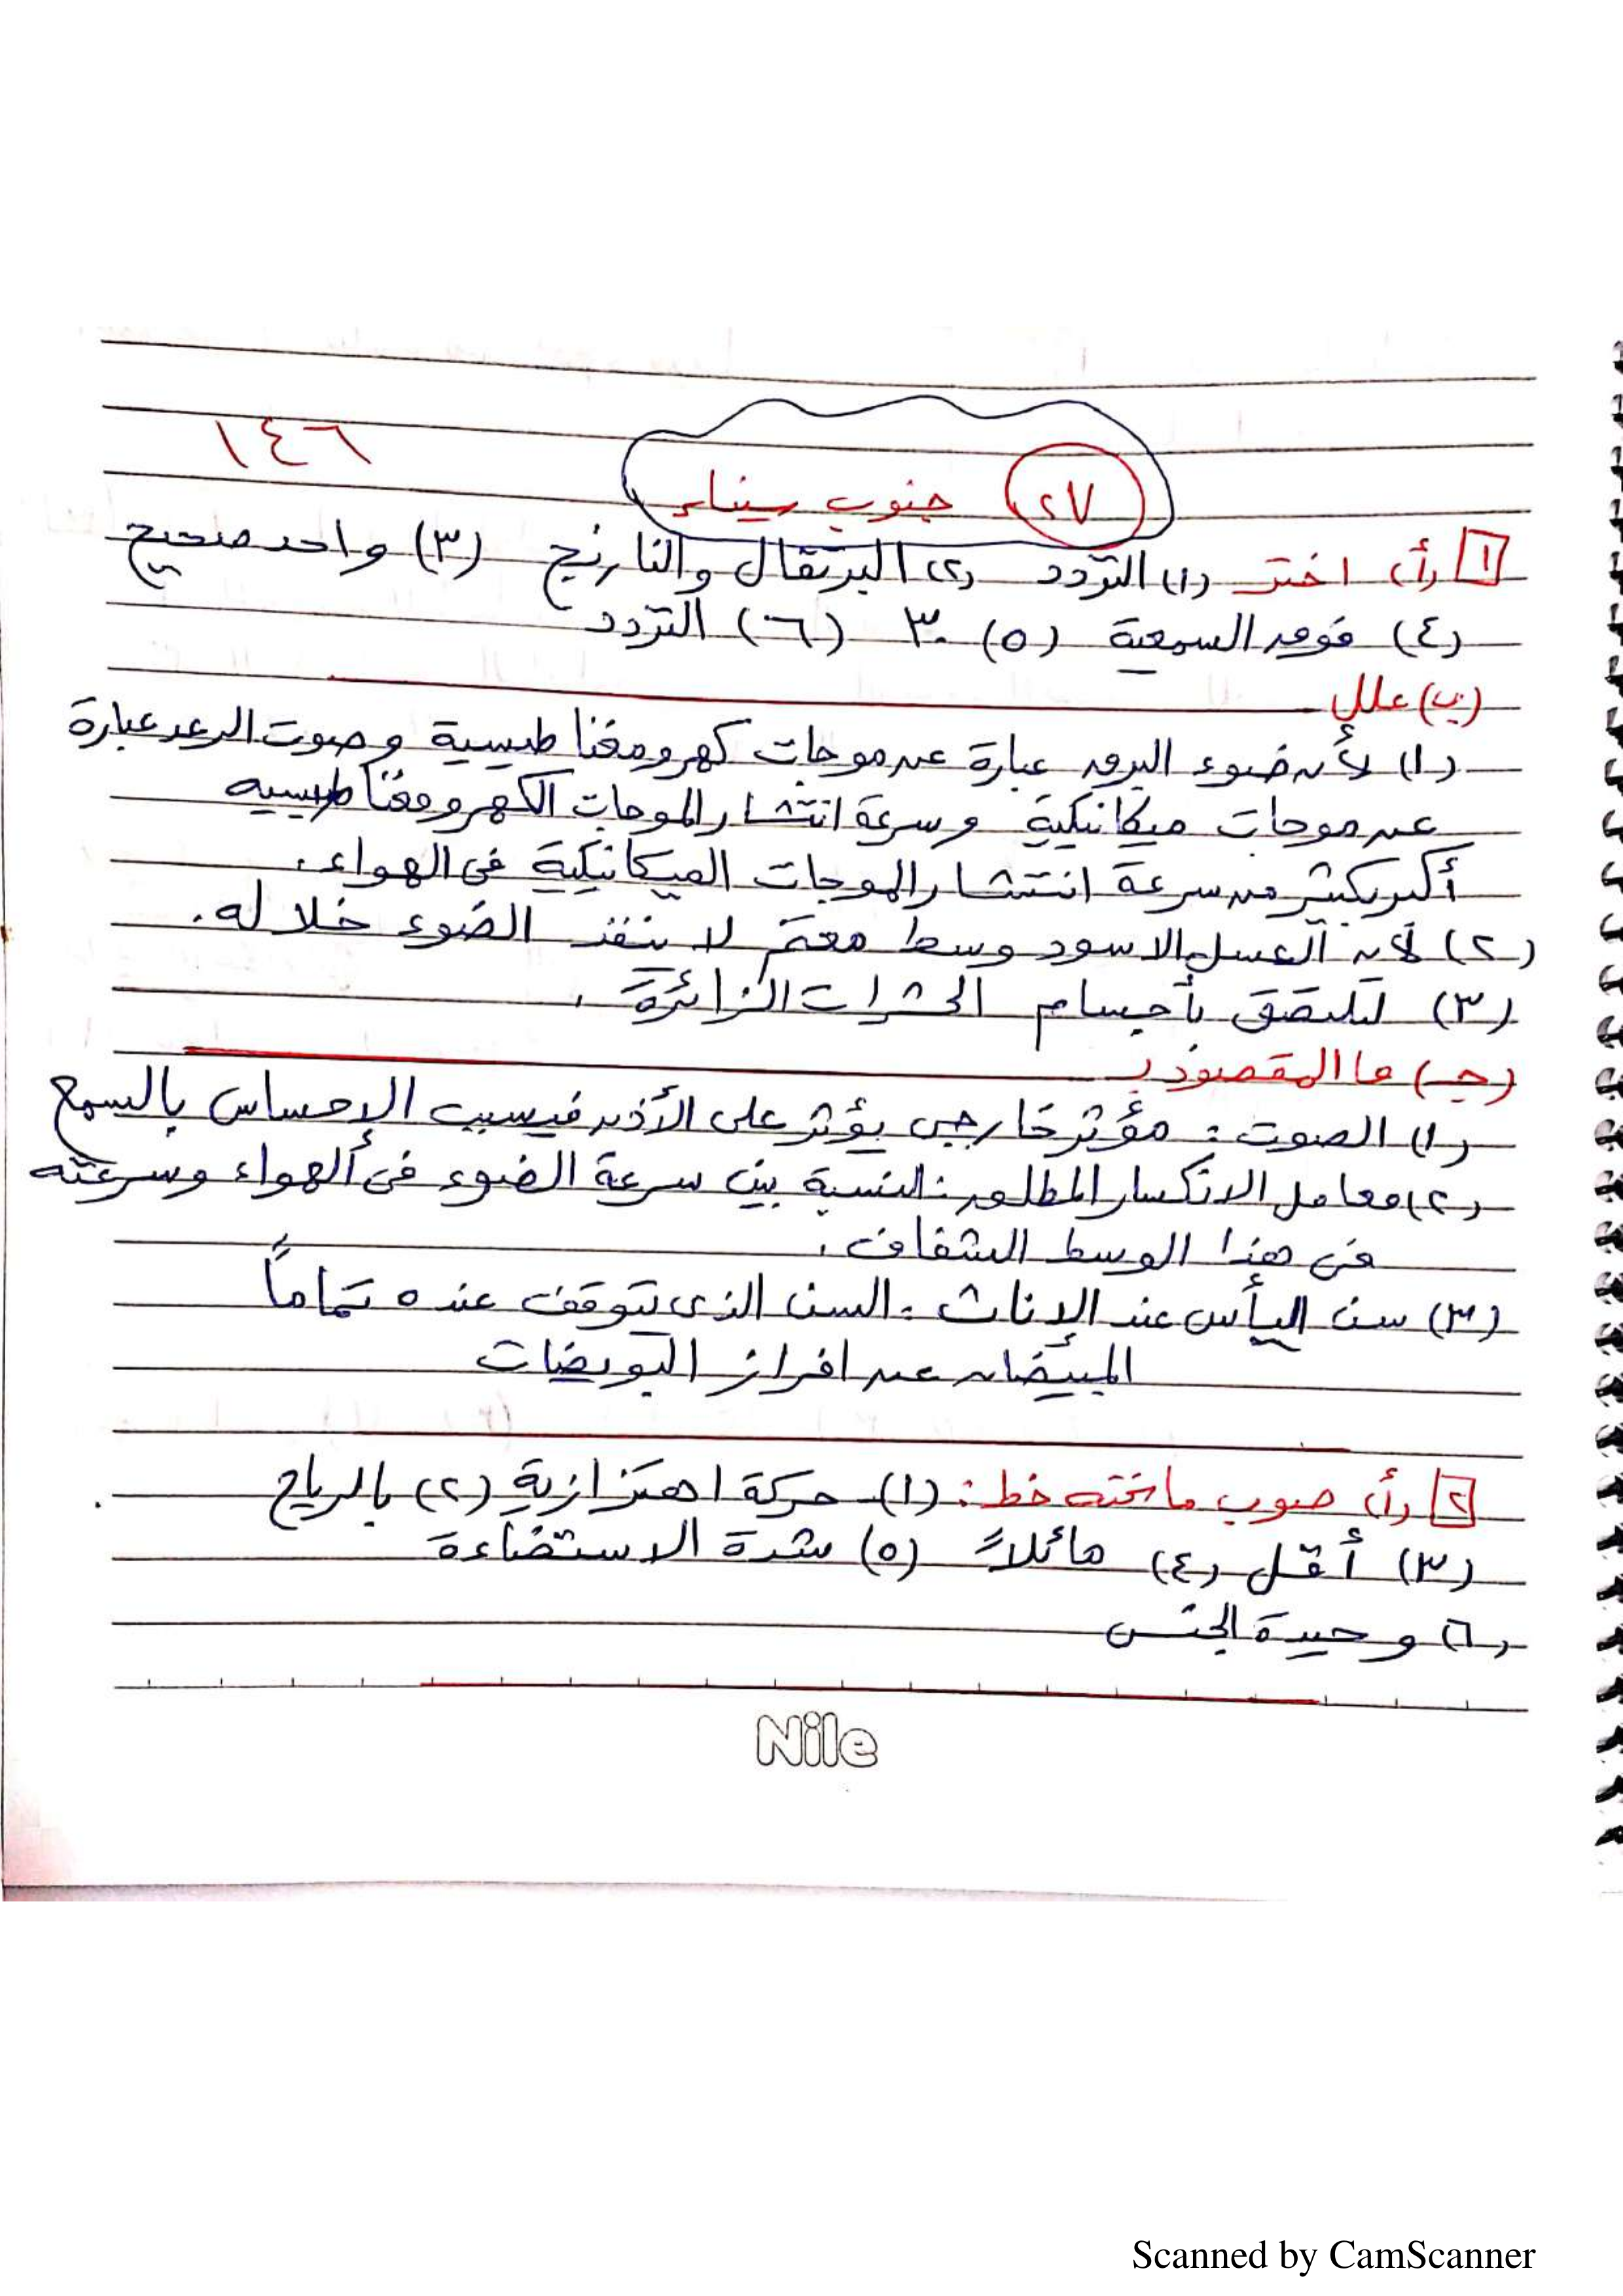 ١٤٦
٢٧ جنوب سيناء
١ (أ) اختر (١) التردد (٢) البرتقال والنارنج (٣) واحد صحيح
(٤) فوق السمعية (٥) ٣٠ (٦) التردد
(ب) علل
(١) لأن ضوء البرق عبارة عن موجات كهرومغناطيسية وصوت الرعد عبارة
عن موجات ميكانيكية وسرعة انتشار الموجات الكهرومغناطيسيه
أكبر بكثير من سرعة انتشار الموجات الميكانيكية فى الهواء.
(٢) لأن العسل الاسود وسط معتم لا ينفذ الضوء خلاله.
(٣) لتلتصق بأجسام الحشرات الزائرة.
(جـ) ما المقصود بـ
(١) الصوت: مؤثر خارجى يؤثر على الأذن فيسبب الاحساس بالسمع
(٢) معامل الانكسار المطلق: النسبة بين سرعة الضوء فى الهواء وسرعته
فى هذا الوسط الشفاف.
(٣) سن اليأس عند الاناث: السن الذى تتوقف عنده تماماً
المبيضان عن افراز البويضات
٢ (أ) صوب ماتحته خط: (١) حركة اهتزازية (٢) بالرياح
(٣) أقل (٤) مائلاً (٥) شدة الاستضاءة
(٦) وحيدة الجنس
Nile
Scanned by CamScanner